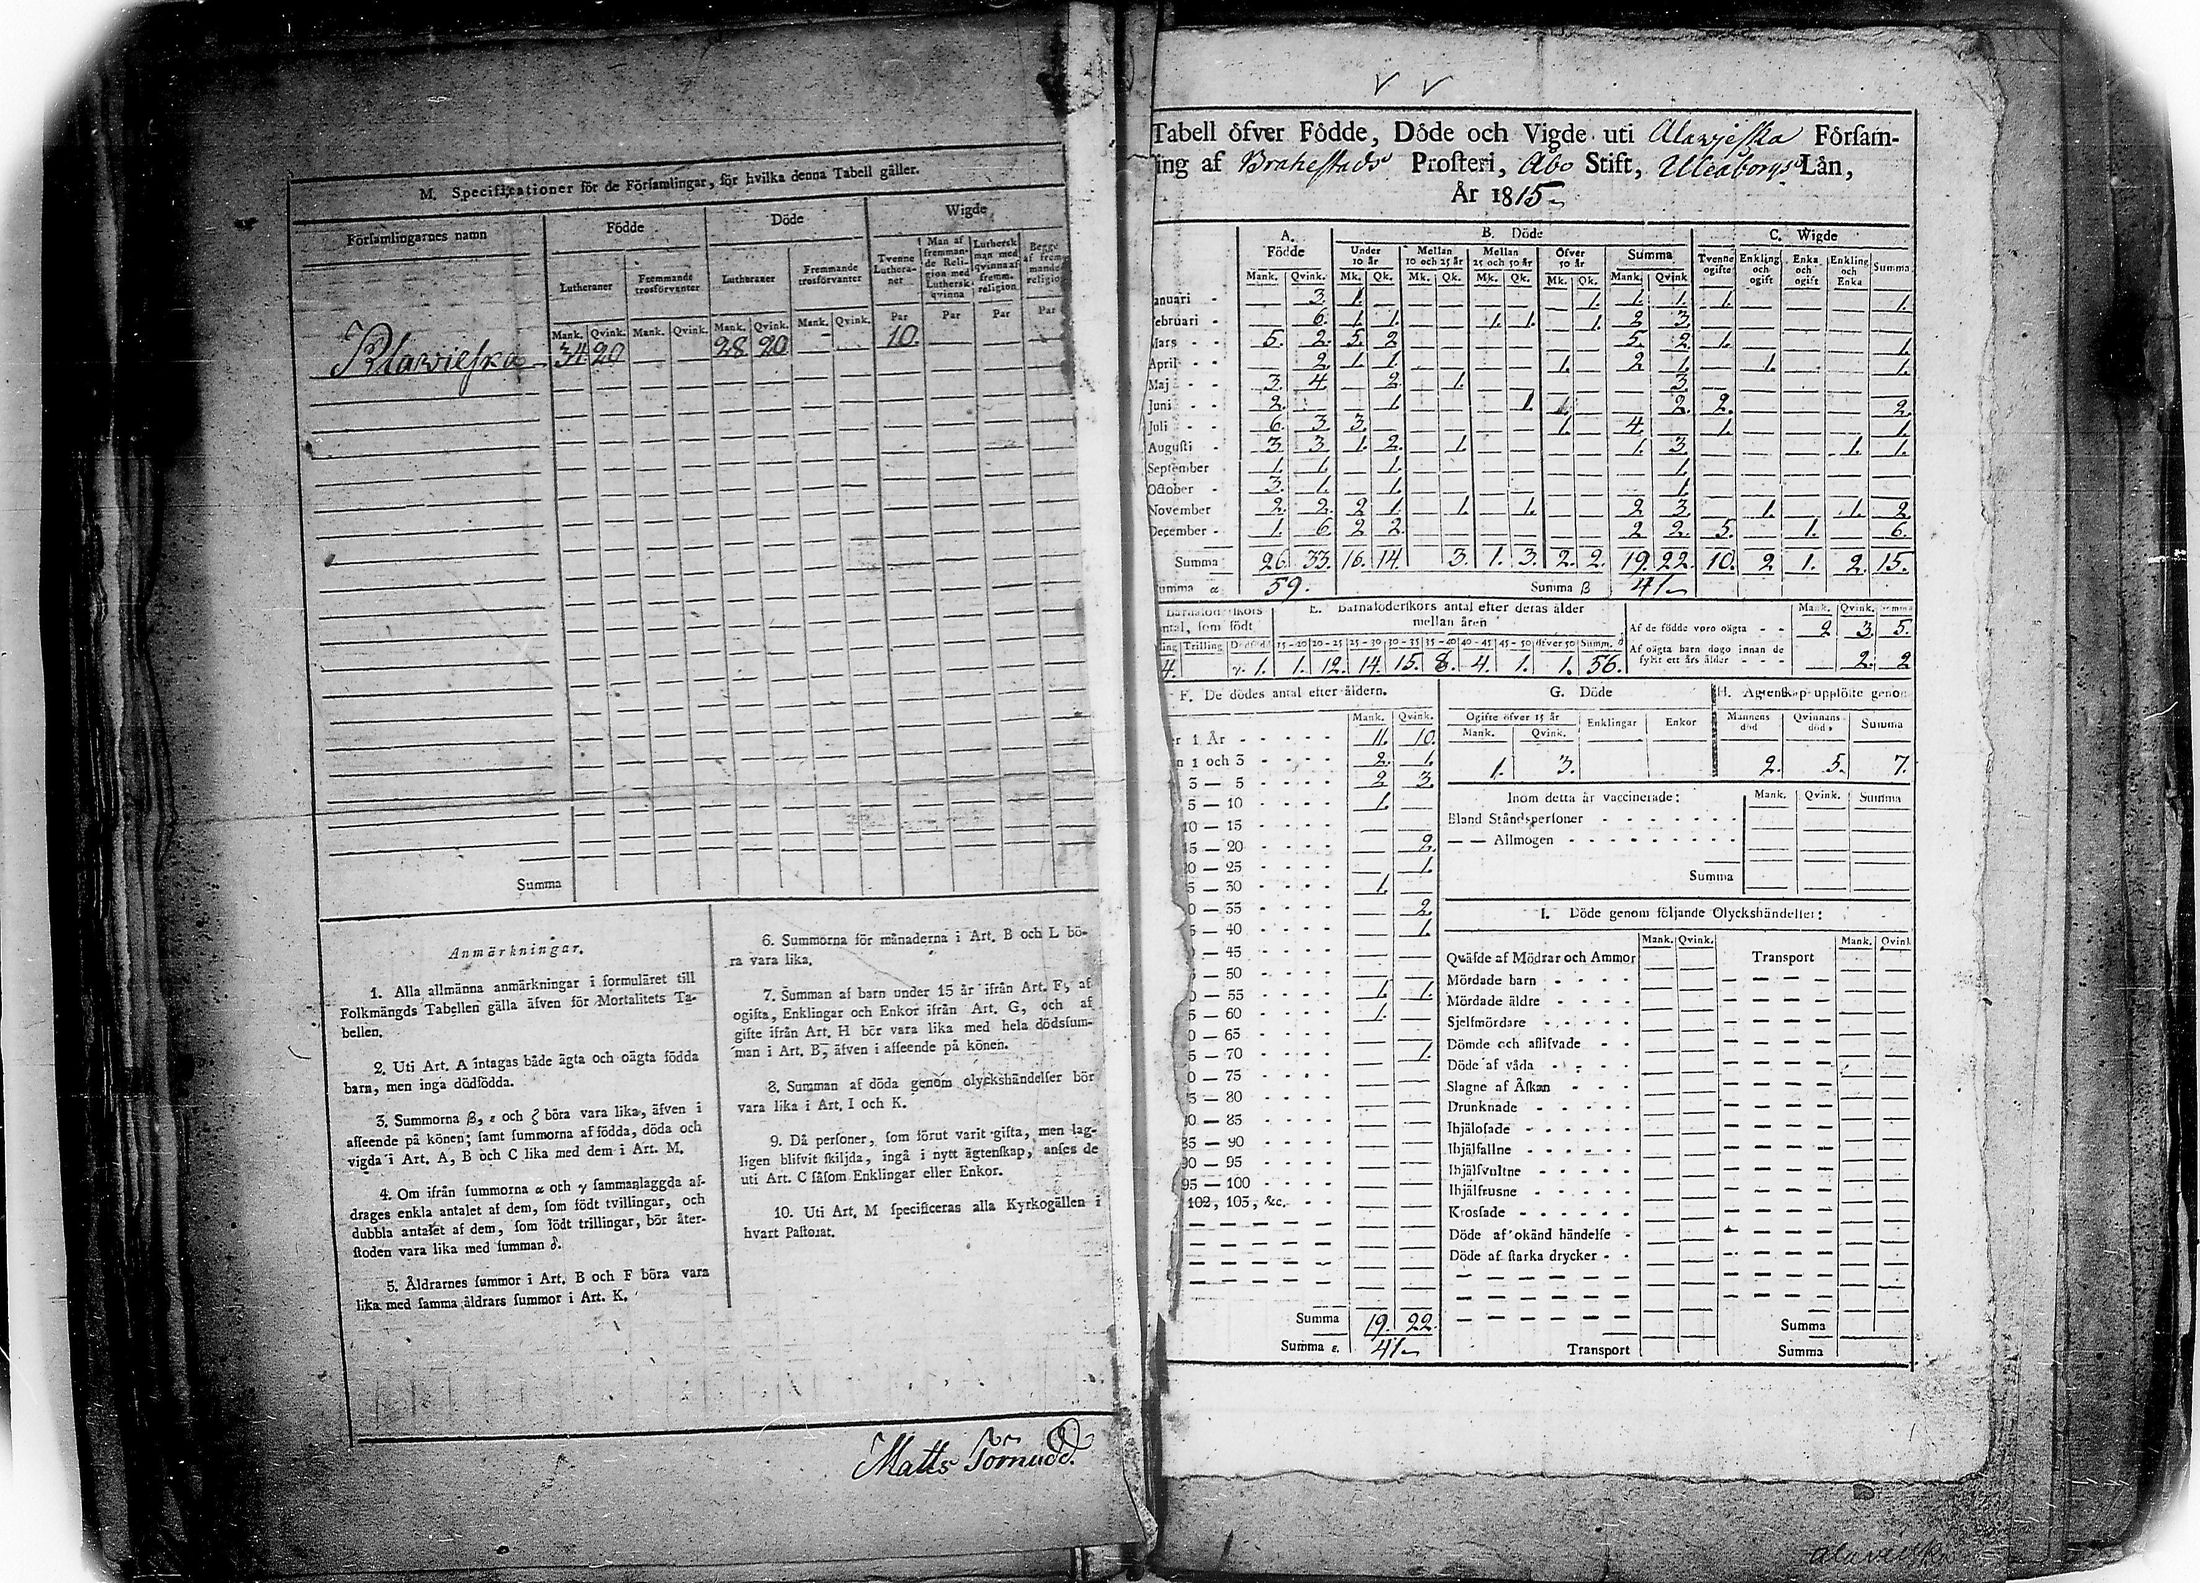 M. Specificationer för de Församlingar, för hvilka denna Tabell gäller.
Församlingarnes namn
Födde
Döde
Wigde
Lutheraner
Fremmande trosförvanter
Lutheraner
Fremmande trosförvanter
Tvenne Lutheraner
Man af fremmande Religion med Luthersk qvinna
Luthersk man med qvinna af fremm. religion
Begge af fremmande religion
Mank. Qvink. Mank. Qvink. Mank. Qvink. Mank. Qvink. Par Par Par Par
34 20 28 20 10.
Summa
Anmärkningar.
1. Alla allmänna anmärkningar i formuläret till
Folkmängds Tabellen gälla äfven för Mortalitets Ta-
bellen.
2. Uti Art. A intagas både ägta och oägta födda
barn, men inga dödfödda.
3. Summorna β, ε och ζ böra vara lika, äfven i
affeende på könen; samt summorna af födda, döda och
vigda i Art. A, B och C lika med dem i Art. M.
4. Om ifrån summorna α och γ sammanlaggda af-
drages enkla antalet af dem, som födt tvillingar, och
dubbla antalet af dem, som födt trillingar, bör åter-
stoden vara lika med summan δ.
5. Åldrarnes summor i Art. B och F böra vara
lika med samma åldrars summor i Art. K.
6. Summorna för månaderna i Art. B och L bö-
ra vara lika.
7. Summan af barn under 15 år ifrån Art. F, af
ogifta, Enklingar och Enkor ifrån Art. G, och af
gifte ifrån Art. H bör vara lika med hela dödssum-
man i Art. B, äfven i affeende på könen.
8. Summan af döda genom olyckshändelser bör
vara lika i Art. I och K.
9. Då personer, som förut varit gifta, men lag-
ligen blifvit skiljda, ingå i nytt ägtenskap, anses de
uti Art. C såsom Enklingar eller Enkor.
10. Uti Art. M specificeras alla Kyrkogällen i
hvart Pastorat.
Matts Törnudd.
Tabell öfver Födde, Döde och Vigde uti Alawjeska Försam-
ling af Brahestads Prosteri, Åbo Stift, Uleåborgs Län,
År 1815
A. Födde
B. Döde
C. Wigde
Under 10 år
Mellan 10 och 25 år
Mellan 25 och 50 år
Öfver 50 år
Summa
Tvenne ogifte
Enkling och ogift
Enka och ogift
Enkling och Enka
Summa
Mank. Qvink. Mk. Qk. Mk. Qk. Mk. Qk. Mk. Qk. Mank. Qvink.
anuari - 3 1. 1. 1. 1. 1. 1.
ebruari - 6. 1. 1. 1. 1. 1. 2 3.
Mars - - 5. 2. 5. 2 5. 2. 1. 1.
April - - 2. 1. 1. 1. 2 1. 1. 1.
Maj - - 3. 4. 2. 1. 3.
Juni - - 2. 1. 1. 2. 2. 2.
Juli - - 6. 3 3. 1. 4. 1. 1.
Augusti - 3. 3. 1. 2. 1. 1. 3. 1. 1.
September - 1. 1. 1. 1.
October - 3. 1. 1. 1.
November 2. 2. 2 1. 1. 1. 2 3. 1. 1. 2.
December - 1. 6 2 2. 2 2. 5. 1. 6.
Summa 26. 33. 16. 14. 3. 1. 3. 2. 2. 19. 22. 10. 2 1. 2. 15.
umma α 59. Summa β 41
E. Barnaföderskors antal efter deras ålder
mellan åren
ntal, som födt
ling Trilling Dödfödd 15-20 20-25 25-30 30-35 35-40 40-45 45-50 öfver 50 Summ. δ
4. γ. 1. 1. 12. 14. 15. 8. 4. 1. 1. 56.
Mank. Qvink. Summa
Af de födde voro oägta - - 2 3. 5.
Af oägta barn dogo innan de
fyllt ett års ålder - - - 2. 2
F. De dödes antal efter åldern.
Mank. Qvink.
r 1 År - - - - - 11. 10.
n 1 och 3 - - - - 2. 1.
3 — 5 - - - - 2 3.
5 — 10 - - - - 1.
10 — 15 - - - -
15 — 20 - - - - 2.
20 — 25 - - - - 1.
5 — 30 - - - - 1.
0 — 35 - - - - 2.
5 — 40 - - - - 1.
— 45 - - - -
— 50 - - - -
0 — 55 - - - - 1. 1.
5 — 60 - - - - 1.
0 — 65 - - - -
5 — 70 - - - - 1.
0 — 75 - - - -
5 — 80 - - - -
80 — 85 - - - -
85 — 90 - - - -
90 — 95 - - - -
95 — 100 - - - -
102, 103, &c. - - -
Summa 19. 22.
Summa ε. 41
G. Döde
Ogifte öfver 15 år Enklingar Enkor
Mank. Qvink.
1. 3.
H. Ägtenskap upplöste genom
Mannens död Qvinnans död Summa
2. 5. 7.
Inom detta år vaccinerade: Mank. Qvink. Summa
Bland Ståndspersoner
— — Allmogen
Summa
I. Döde genom följande Olyckshändelser:
Mank. Qvink. Mank. Qvink
Qväfde af Mödrar och Ammor Transport
Mördade barn
Mördade äldre
Sjelfmördare
Dömde och aflifvade
Döde af våda
Slagne af Åskan
Drunknade
Ihjälosade
Ihjälfallne
Ihjälsvultne
Ihjälfrusne
Krossade
Döde af okänd händelse
Döde af starka drycker
Summa
Transport Summa
Alavieska